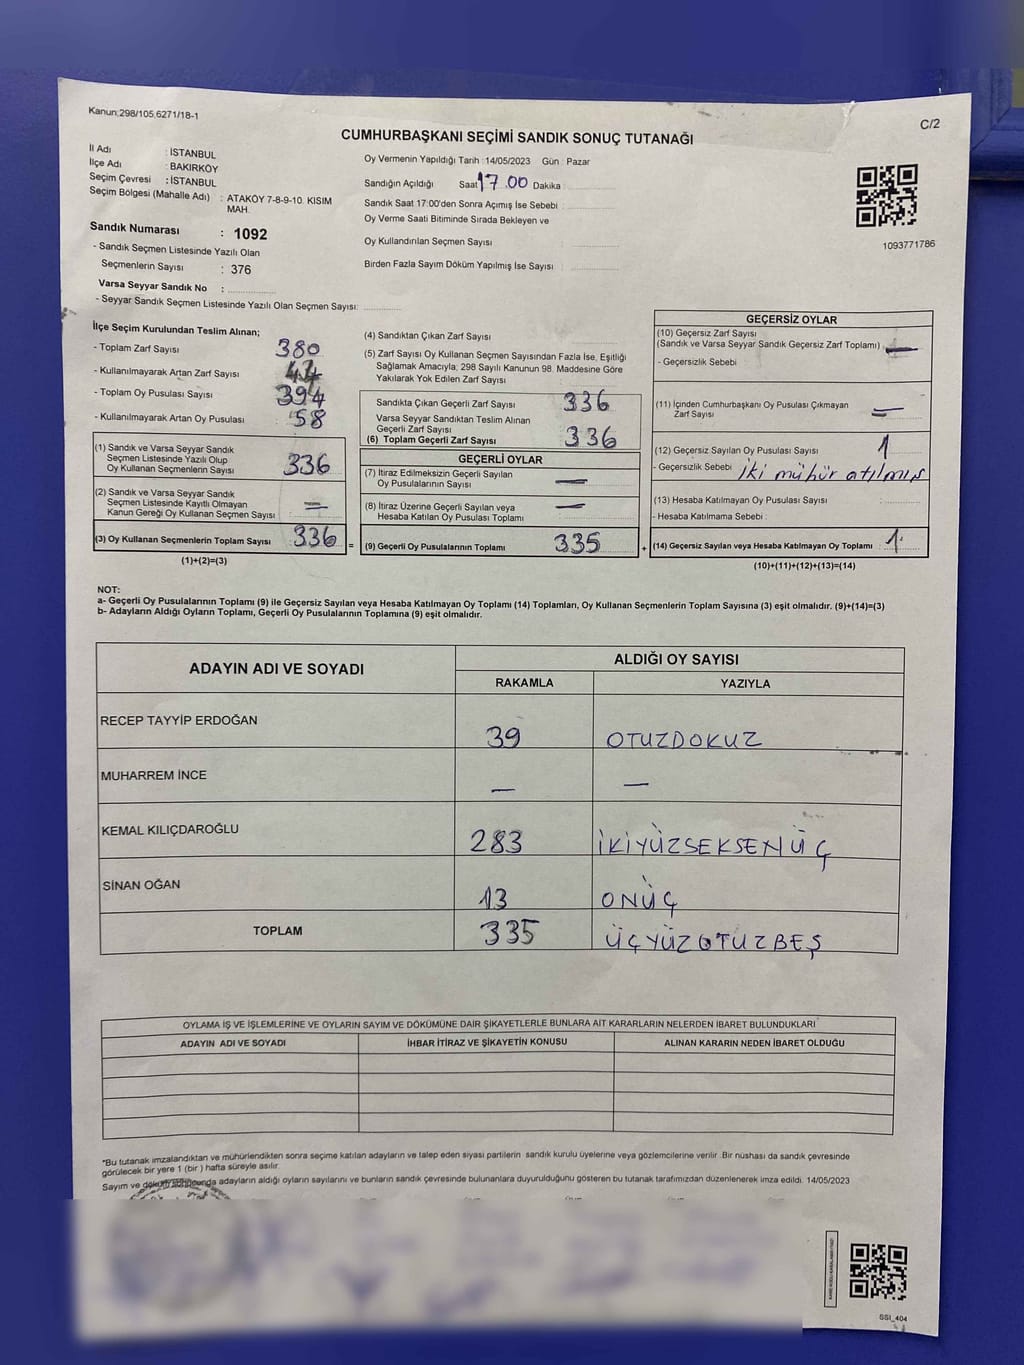 Kanun;298/105,6271/18-1
C/2
CUMHURBAŞKANI SEÇİMİ SANDIK SONUÇ TUTANAĞI
İl Adı : İSTANBUL
İlçe Adı : BAKIRKÖY
Seçim Çevresi : İSTANBUL
Seçim Bölgesi (Mahalle Adı) : ATAKÖY 7-8-9-10. KISIM MAH.
Sandık Numarası : 1092
- Sandık Seçmen Listesinde Yazılı Olan
Seçmenlerin Sayısı : 376
Varsa Seyyar Sandık No :
- Seyyar Sandık Seçmen Listesinde Yazılı Olan Seçmen Sayısı:
Oy Vermenin Yapıldığı Tarih : 14/05/2023 Gün : Pazar
Sandığın Açıldığı Saat 17.00 Dakika
Sandık Saat 17:00'den Sonra Açımış İse Sebebi :
Oy Verme Saati Bitiminde Sırada Bekleyen ve
Oy Kullandırılan Seçmen Sayısı :
Birden Fazla Sayım Döküm Yapılmış İse Sayısı :
1093771786
İlçe Seçim Kurulundan Teslim Alınan;
- Toplam Zarf Sayısı : 380
- Kullanılmayarak Artan Zarf Sayısı : 44
- Toplam Oy Pusulası Sayısı : 394
- Kullanılmayarak Artan Oy Pusulası : 58
(1) Sandık ve Varsa Seyyar Sandık
Seçmen Listesinde Yazılı Olup
Oy Kullanan Seçmenlerin Sayısı : 336
(2) Sandık ve Varsa Seyyar Sandık
Seçmen Listesinde Kayıtlı Olmayan
Kanun Gereği Oy Kullanan Seçmen Sayısı : —
(3) Oy Kullanan Seçmenlerin Toplam Sayısı : 336
(1)+(2)=(3)
(4) Sandıktan Çıkan Zarf Sayısı :
(5) Zarf Sayısı Oy Kullanan Seçmen Sayısından Fazla İse, Eşitliği
Sağlamak Amacıyla; 298 Sayılı Kanunun 98. Maddesine Göre
Yakılarak Yok Edilen Zarf Sayısı :
Sandıkta Çıkan Geçerli Zarf Sayısı : 336
Varsa Seyyar Sandıktan Teslim Alınan
Geçerli Zarf Sayısı :
(6) Toplam Geçerli Zarf Sayısı : 336
GEÇERLİ OYLAR
(7) İtiraz Edilmeksizin Geçerli Sayılan
Oy Pusulalarının Sayısı : —
(8) İtiraz Üzerine Geçerli Sayılan veya
Hesaba Katılan Oy Pusulası Toplamı : —
= (9) Geçerli Oy Pusulalarının Toplamı : 335
GEÇERSİZ OYLAR
(10) Geçersiz Zarf Sayısı
(Sandık ve Varsa Seyyar Sandık Geçersiz Zarf Toplamı) : —
- Geçersizlik Sebebi :
(11) İçinden Cumhurbaşkanı Oy Pusulası Çıkmayan
Zarf Sayısı : —
(12) Geçersiz Sayılan Oy Pusulası Sayısı : 1
- Geçersizlik Sebebi : iki mühür atılmış
(13) Hesaba Katılmayan Oy Pusulası Sayısı :
- Hesaba Katılmama Sebebi :
+ (14) Geçersiz Sayılan veya Hesaba Katılmayan Oy Toplamı : 1
(10)+(11)+(12)+(13)=(14)
NOT:
a- Geçerli Oy Pusulalarının Toplamı (9) ile Geçersiz Sayılan veya Hesaba Katılmayan Oy Toplamı (14) Toplamları, Oy Kullanan Seçmenlerin Toplam Sayısına (3) eşit olmalıdır. (9)+(14)=(3)
b- Adayların Aldığı Oyların Toplamı, Geçerli Oy Pusulalarının Toplamına (9) eşit olmalıdır.
ADAYIN ADI VE SOYADI
ALDIĞI OY SAYISI
RAKAMLA YAZIYLA
RECEP TAYYİP ERDOĞAN 39 OTUZDOKUZ
MUHARREM İNCE — —
KEMAL KILIÇDAROĞLU 283 İKİYÜZSEKSENÜÇ
SİNAN OĞAN 13 ONÜÇ
TOPLAM 335 ÜÇYÜZOTUZBEŞ
OYLAMA İŞ VE İŞLEMLERİNE VE OYLARIN SAYIM VE DÖKÜMÜNE DAİR ŞİKAYETLERLE BUNLARA AİT KARARLARIN NELERDEN İBARET BULUNDUKLARI
ADAYIN ADI VE SOYADI İHBAR İTİRAZ VE ŞİKAYETİN KONUSU ALINAN KARARIN NEDEN İBARET OLDUĞU
*Bu tutanak imzalandıktan ve mühürlendikten sonra seçime katılan adayların ve talep eden siyasi partilerin sandık kurulu üyelerine veya gözlemcilerine verilir .Bir nüshası da sandık çevresinde
görülecek bir yere 1 (bir ) hafta süreyle asılır.
Sayım ve dökümünda adayların aldığı oyların sayılarını ve bunların sandık çevresinde bulunanlara duyurulduğunu gösteren bu tutanak tarafımızdan düzenlenerek imza edildi. 14/05/2023
SSI_404